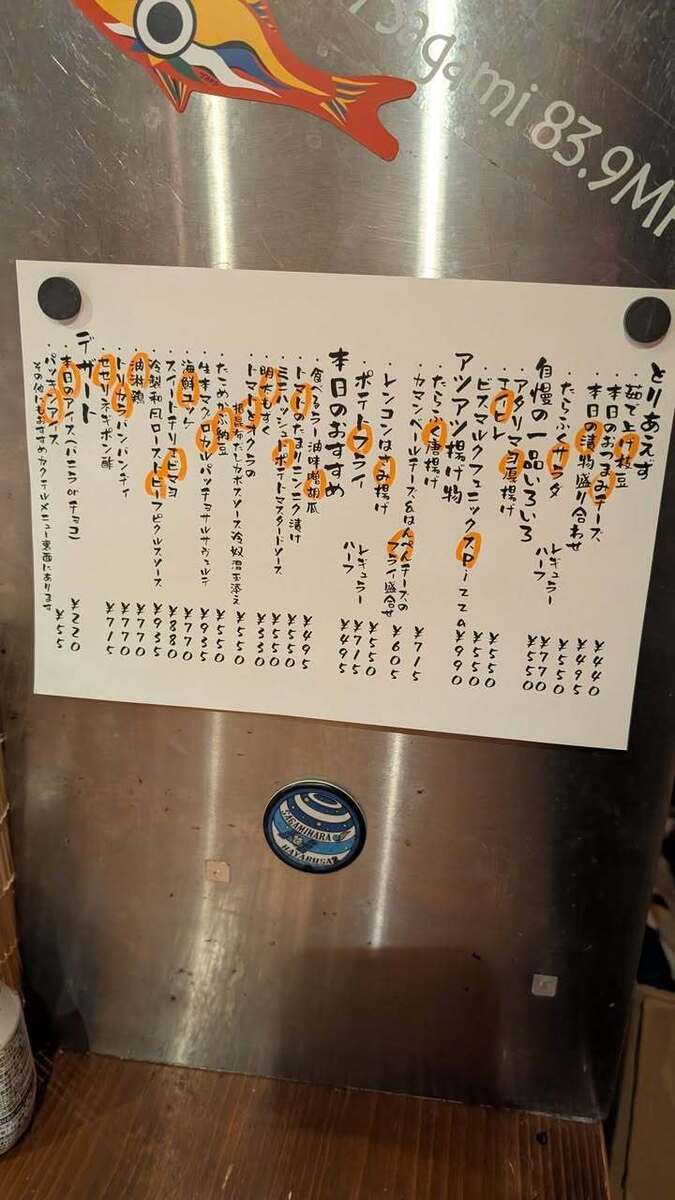 Sagami 83.9MH
とりあえず
・茹で上げ枝豆 ¥440
・本日のおつまみチーズ ¥495
・本日の漬物盛り合わせ ¥550
・たらふくサラダ レギュラー ¥770
ハーフ ¥550
自慢の一品いろいろ
・アタリマヨ唐揚げ ¥550
・エイヒレ ¥550
・ビスマルクフェニックスPizza ¥990
アツアツ揚げ物
・たらこぶ唐揚げ ¥715
・カマンベールチーズ&はんぺんチーズの
フライ盛合せ ¥605
・レンコンはさみ揚げ ¥550
・ポテトフライ レギュラー ¥715
ハーフ ¥495
本日のおすすめ
・食べるラー油味噌胡瓜 ¥495
・トマトのたまりニンニク漬け ¥550
・ミニハッシュドポテトマスタードソース ¥550
・明太もずく ¥330
・トマトオクラの
根昆布だしカポスソース冷奴温玉添え ¥550
・たこめかぶ納豆 ¥550
・生本マグロカルパッチョサルサヴェルデ ¥935
・海鮮ユッケ ¥770
・スイートチリエビマヨ ¥880
・冷製和風ローストビーフピクルスソース ¥935
・油淋鶏 ¥770
・トリカラバンバンディ ¥770
・セセリネギポン酢 ¥715
デザート
・本日のアイス(バニラorチョコ) ¥220
・パッキンアイス ¥55
その他にもおすすめカクテルメニュー裏面にあります
SAGAMIHARA
HAYABUSA2